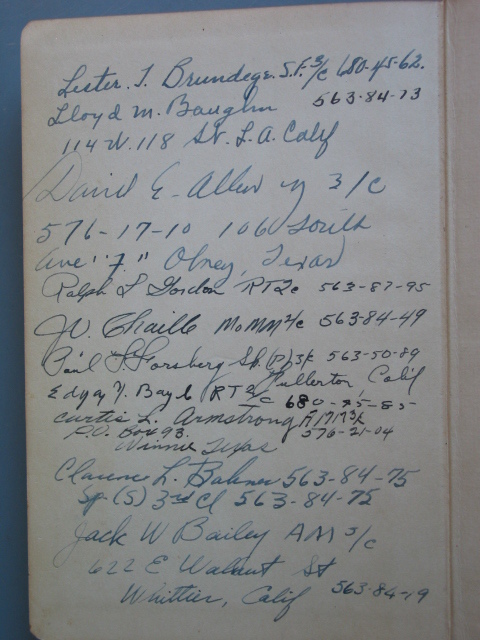 Lester. T. Brundege. S.F. 3/c 680-45-62.
Lloyd M. Baughn 563-84-73
114 W. 118 St. L.A. Calif
David E. Allen 3/c
576-17-10 106 South
Ave "J" Olney, Texas
Ralph L Gordon RT2c 563-87-95
J.W. Chaille MoMM 2/c 563-84-49
Paul Forsberg 563-50-89
Fullerton, Calif
Edgar Y. Bayl RT2/c 680-25-85
Curtis L. Armstrong F1
P.O. Box 93. 576-21-04
Winnie Texas
Clarence L. 563-84-75
Sp. (S) 3rd Cl 563-84-75
Jack W Bailey AM 3/c
622 E Walnut St
Whittier, Calif 563-84-19